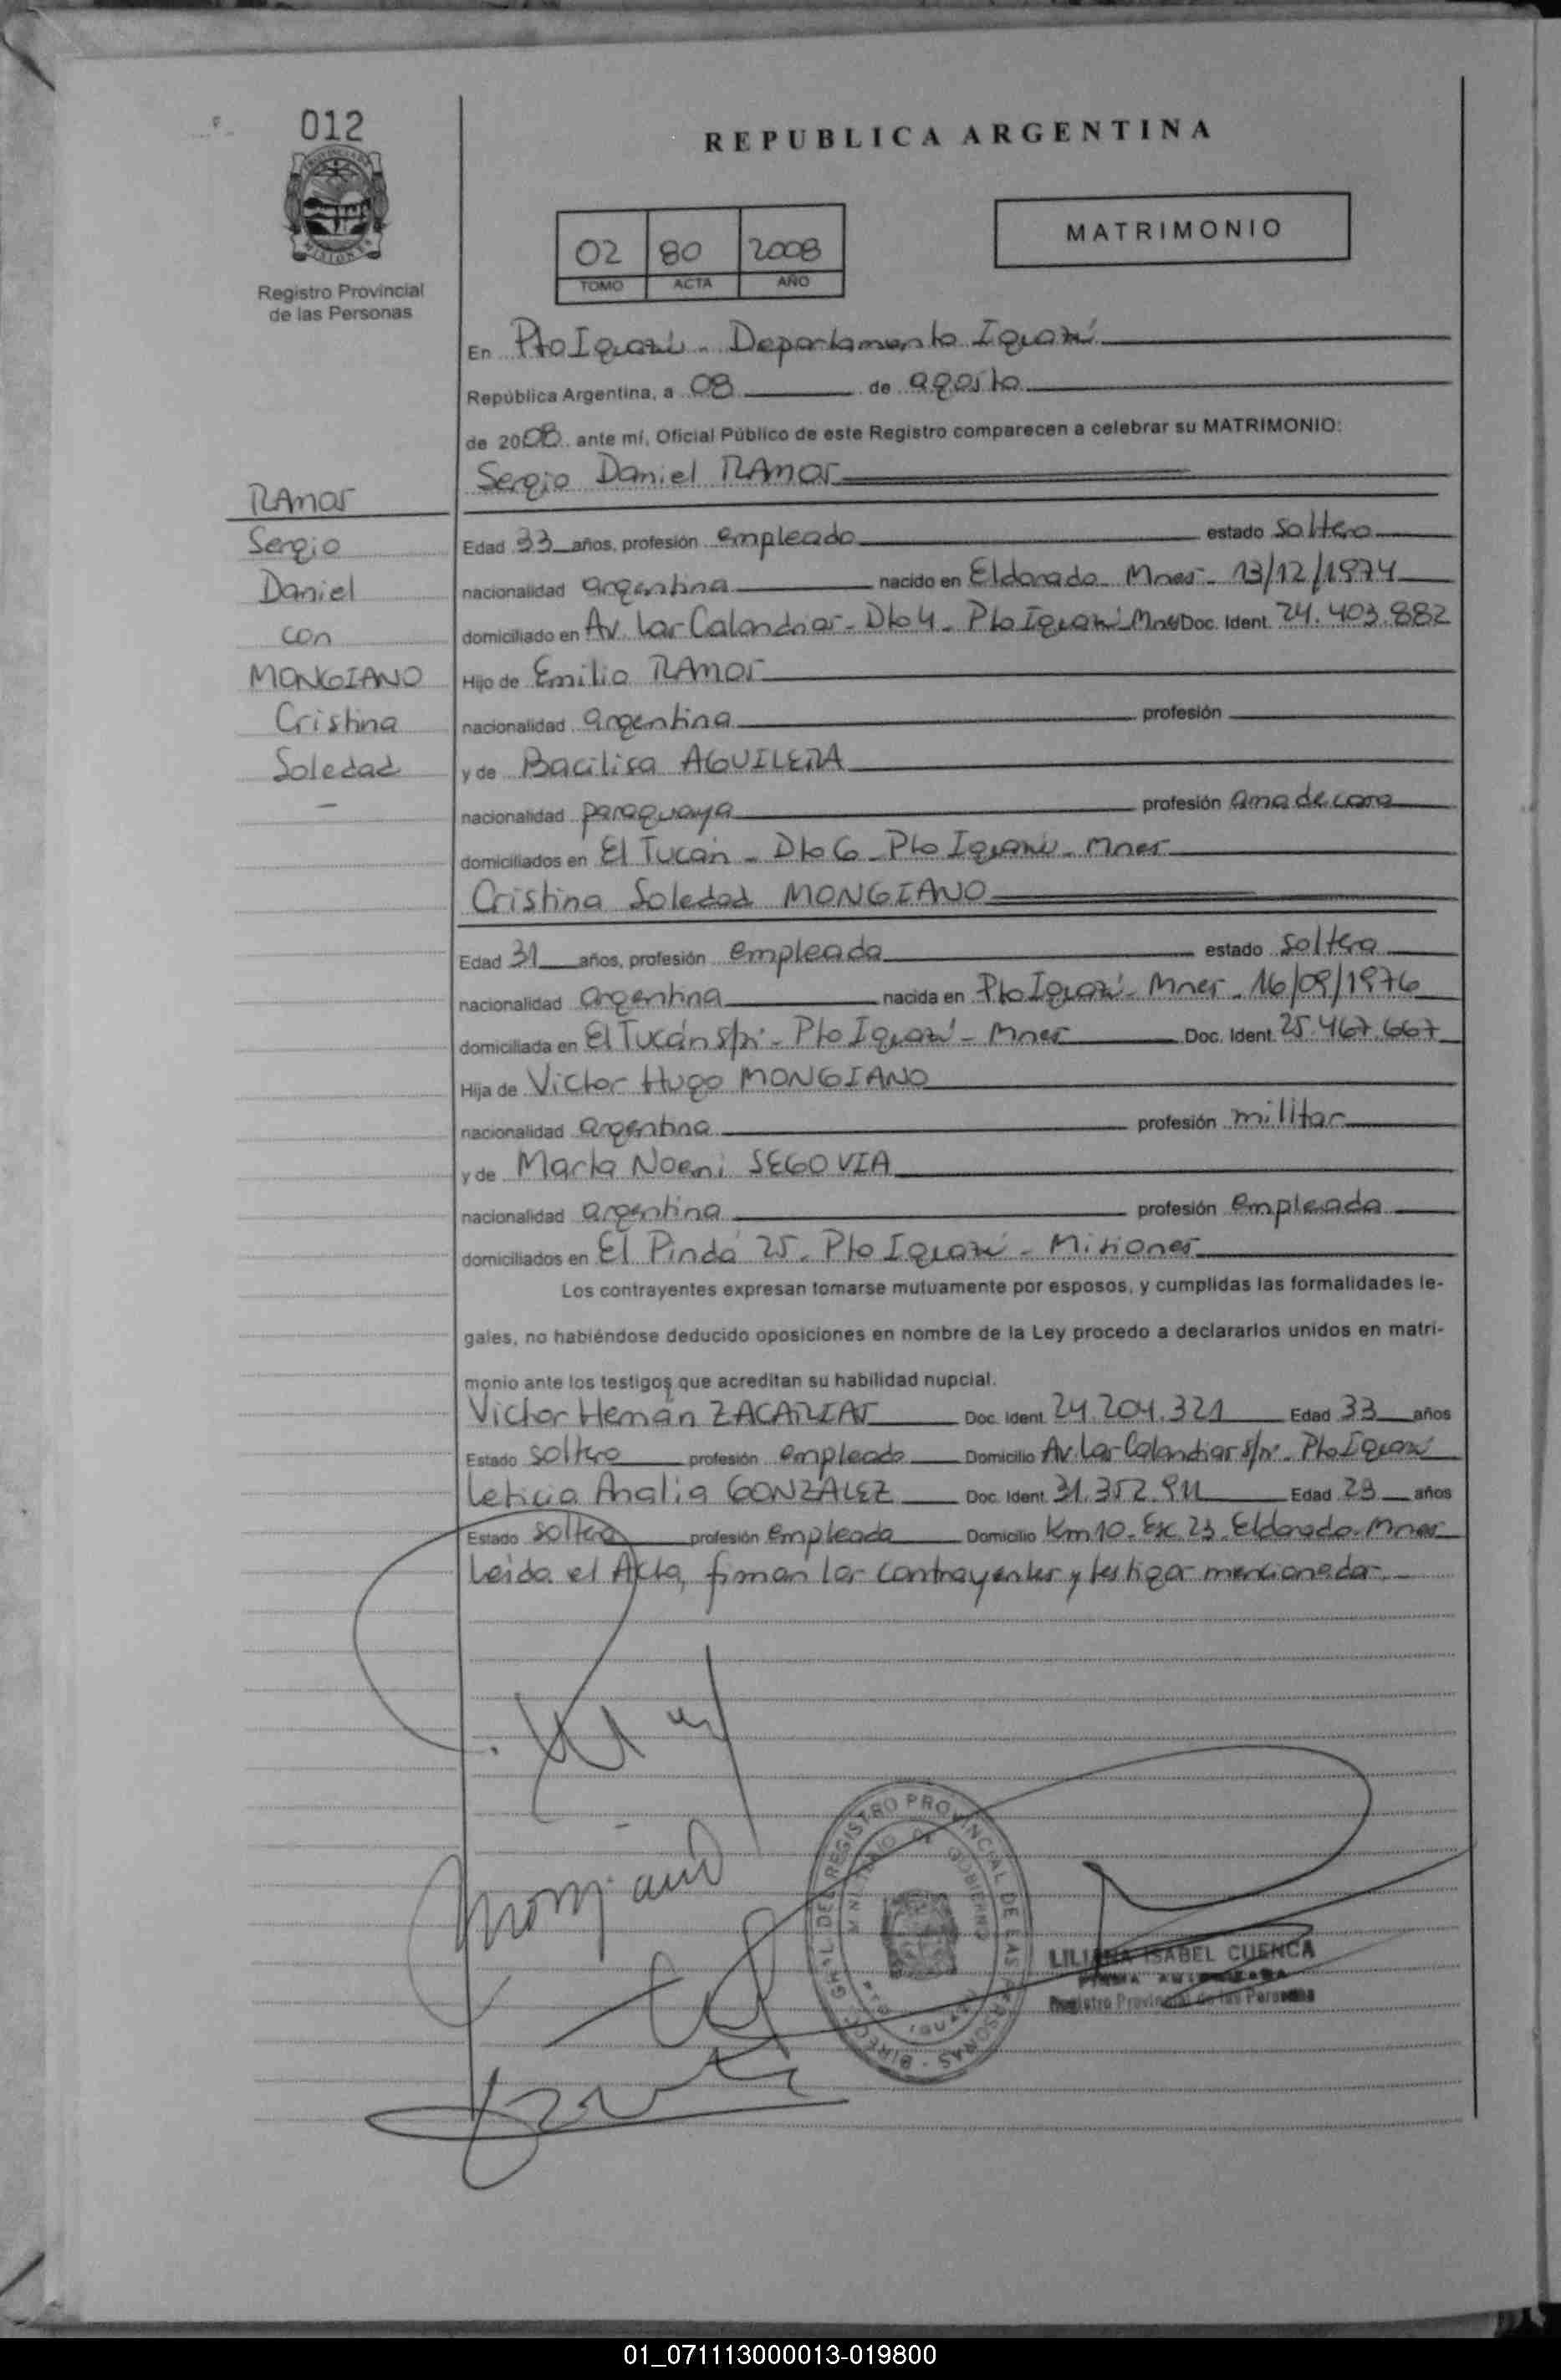 012
REPUBLICA ARGENTINA
MATRIMONIO
02 80 2008
TOMO ACTA AÑO
Registro Provincial
de las Personas
En Pto Iguazú - Departamento Iguazú
República Argentina, a 08 de agosto
de 2008 ante mí, Oficial Público de este Registro comparecen a celebrar su MATRIMONIO:
Sergio Daniel RAMOS
RAMOS
Sergio
Daniel
con
MONGIANO
Cristina
Soledad
Edad 33 años, profesión empleado estado soltero
nacionalidad argentina nacido en Eldorado - Mnes - 13/12/1974
domiciliado en Av. Las Calandrias - Dto 4 - Pto Iguazú - Mnes Doc. Ident. 24.403.882
Hijo de Emilio RAMOS
nacionalidad argentina profesión
y de Bacilisa AGUILERA
nacionalidad paraguaya profesión ama de casa
domiciliados en El Tucán - Dto 6 - Pto Iguazú - Mnes
Cristina Soledad MONGIANO
Edad 31 años, profesión empleada estado soltera
nacionalidad argentina nacida en Pto Iguazú - Mnes - 16/09/1976
domiciliada en El Tucán s/n - Pto Iguazú - Mnes Doc. Ident. 25.467.667
Hija de Victor Hugo MONGIANO
nacionalidad argentina profesión militar
y de Marta Noemi SEGOVIA
nacionalidad argentina profesión empleada
domiciliados en El Pindó 25 - Pto Iguazú - Misiones
Los contrayentes expresan tomarse mutuamente por esposos, y cumplidas las formalidades le-
gales, no habiéndose deducido oposiciones en nombre de la Ley procedo a declararlos unidos en matri-
monio ante los testigos que acreditan su habilidad nupcial.
Victor Hernán ZACARIAS Doc. Ident. 24.204.321 Edad 33 años
Estado soltero profesión empleado Domicilio Av. Las Calandrias s/n - Pto Iguazú
Leticia Analia GONZALEZ Doc. Ident. 31.352.911 Edad 23 años
Estado soltera profesión empleada Domicilio Km 10 - Esc. 23 - Eldorado - Mnes
Leída el Acta, firman los contrayentes y testigos mencionados.
Mongiano
DIRECC. GRAL. DEL REGISTRO PROVINCIAL DE LAS PERSONAS
MINISTERIO DE GOBIERNO
LILIANA ISABEL CUENCA
FIRMA AUTORIZADA
Registro Provincial de las Personas
01_071113000013-019800